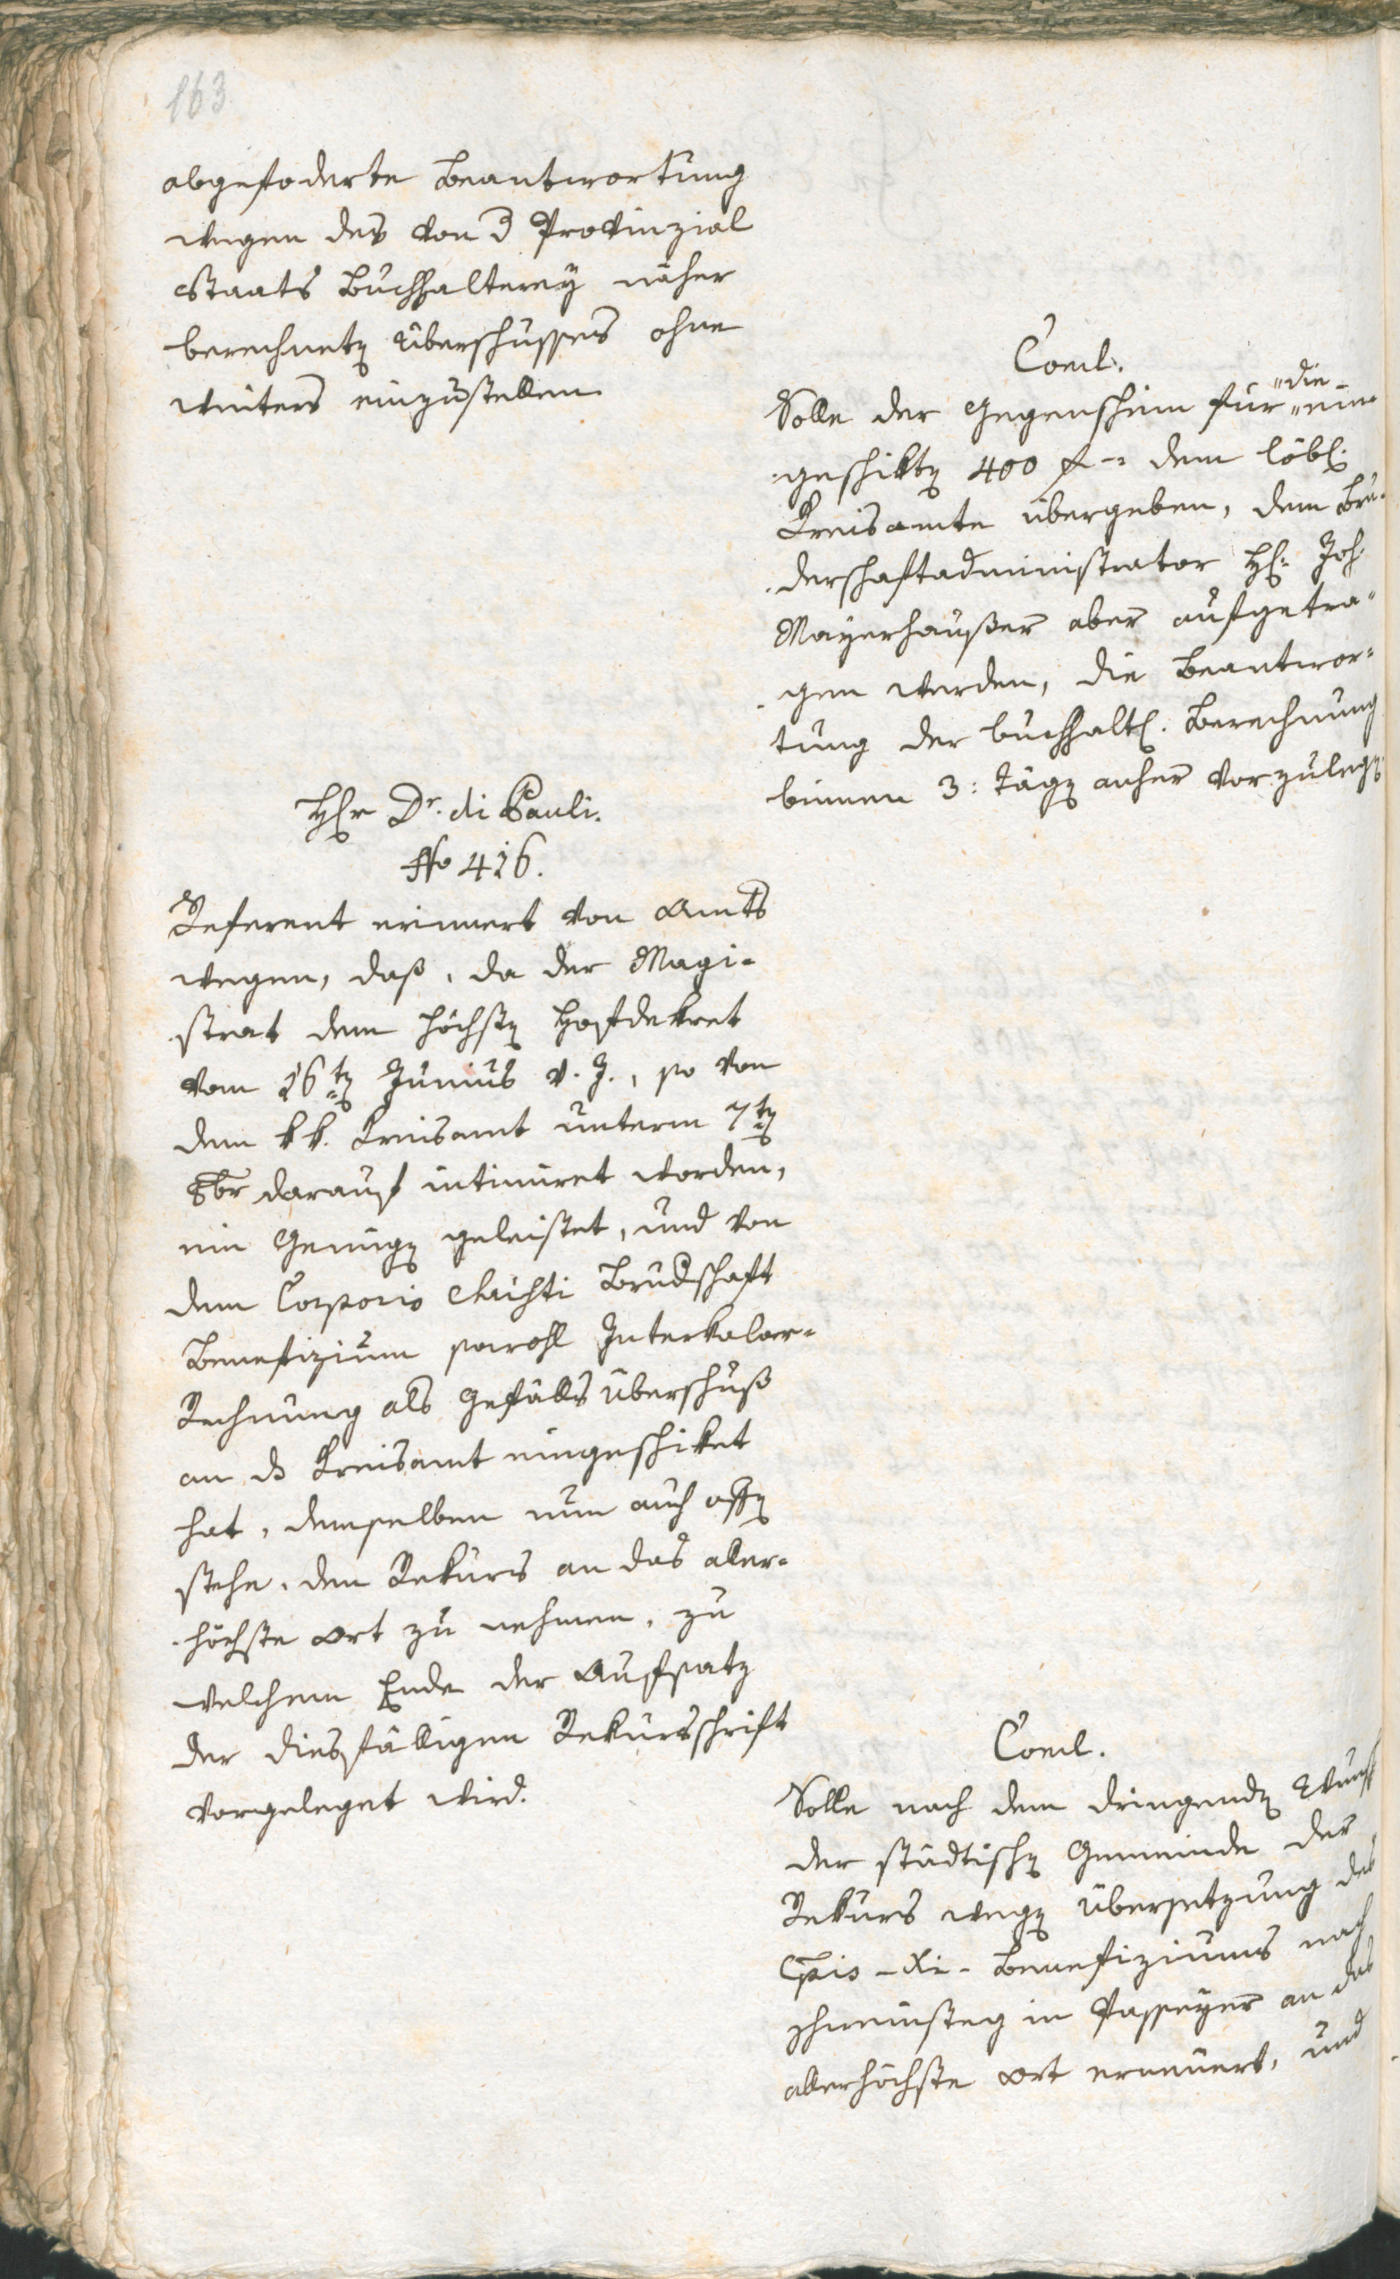 163
abgefoderte Beantwortung
wegen des von d Provinzial
Staats Buchhalterey näher
berechnetn Überschusses ohne
weiters einzustellen.
Concl.
die
Solle der Gegenschein für ein-
geschiktn 400 f - dem löbl.
Kreisamte übergeben, dem Bru-
derschaftadministrator H: Joh.
Mayerhaußer aber aufgetra-
gen werden, die Beantwor-
tung der buchhaltl. Berechnung
binnen 3: Tägn anher vorzulegn.
Hr Dr. di Pauli.
No 416.
Referent erinnert von Amts
wegen, daß, da der Magi-
strat dem höchstn Hofdekret
vom 16tn Junius v. J., so von
dem kk. Kreisamt unterm 7tn
8br darauf intimiret worden,
ein Genügn geleistet, und von
dem Corporis Christi Brudschaft
Benefizium sowohl Interkalar-
Rechnung als Gefälls Überschuß
an ds Kreisamt eingeschiket
hat, demselben nun auch offn
stehe, den Rekurs an das aller-
höchste Ort zu nehmen, zu
welchem Ende der Aufsatz
der diesfälligen Rekursschrift
vorgeleget wird.
Concl.
Solle nach dem dringendn Wunsch
der städtischn Gemeinde der
Rekurs wegn Übersetzung des
Cpis - Xi - Benefiziums nach
Schweinsteg in Passeyer an das
allerhöchste Ort erneuert, und